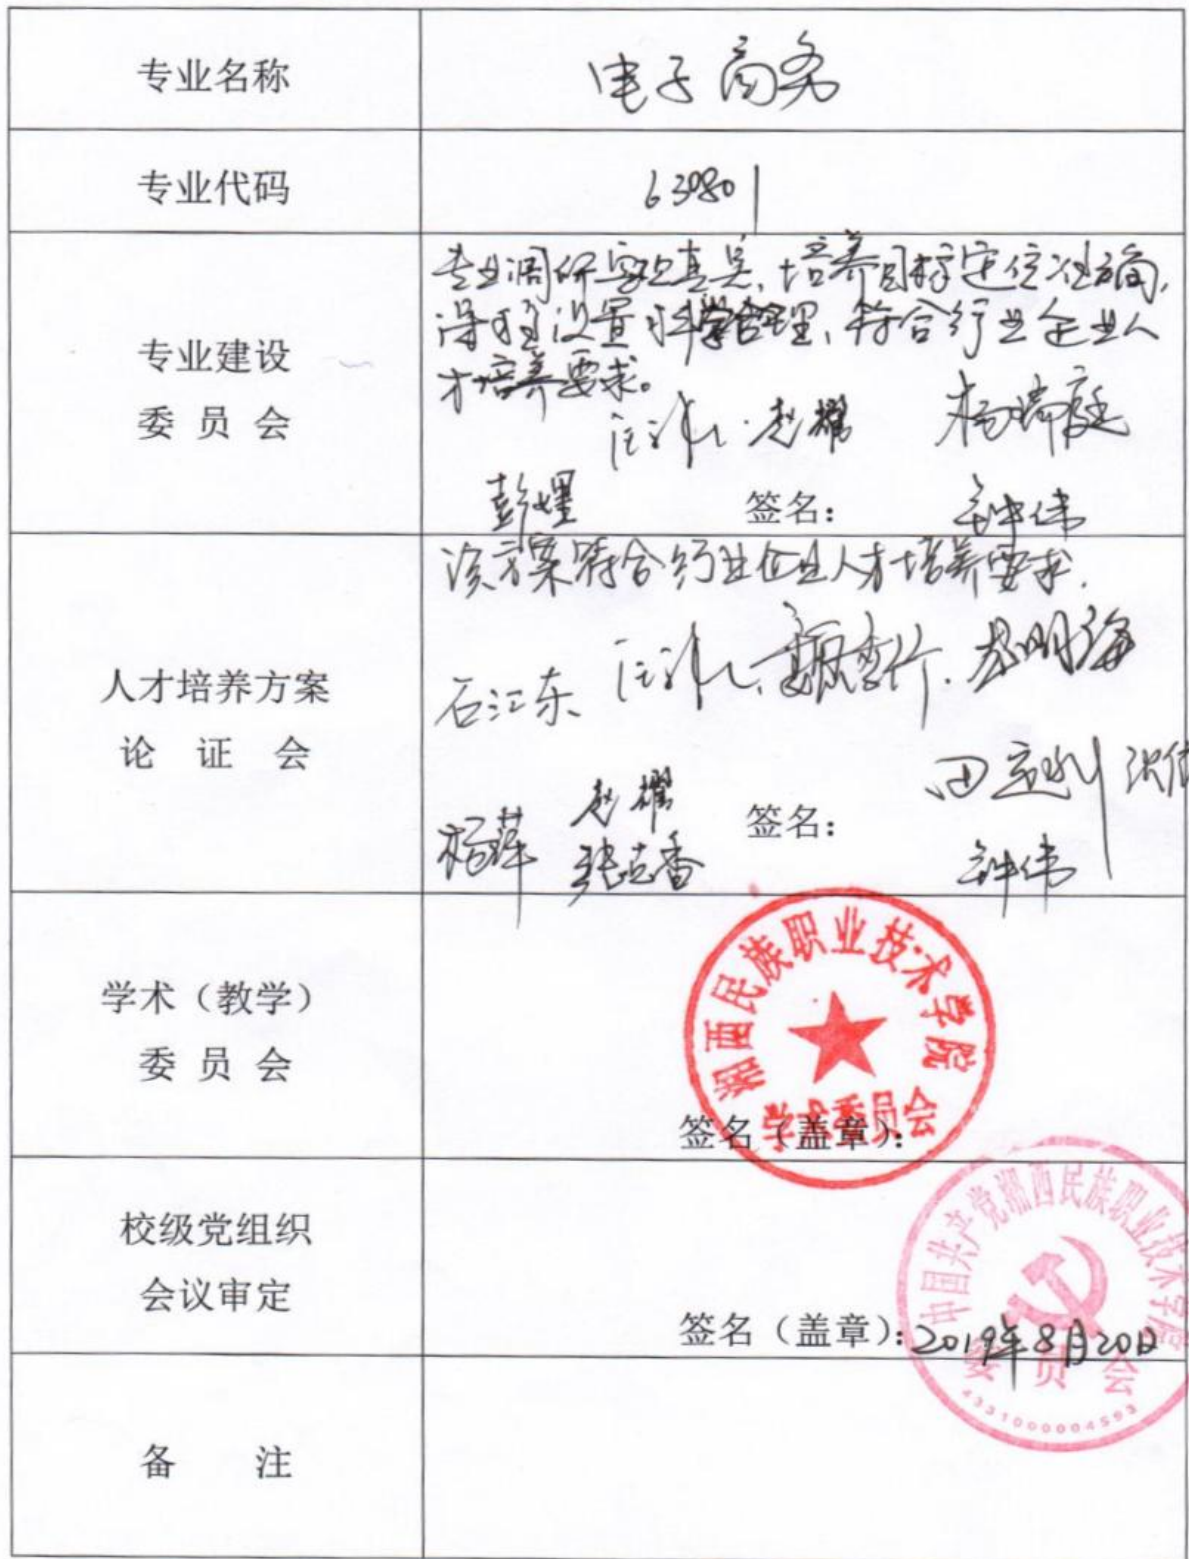 专业名称
电子商务
专业代码
630801
专业建设
委 员 会
专业调研客观真实,培养目标定位准确,
课程设置科学合理,符合行业企业人
才培养要求。
赵耀 杨瑞庭
签名: 钟伟
人才培养方案
论 证 会
该方案符合行业企业人才培养要求.
石江东
赵耀
签名:
杨萍 钟伟
学术(教学)
委 员 会
湘西民族职业技术学院
学术委员会
签名(盖章):
校级党组织
会议审定
中国共产党湘西民族职业技术学院
委员会
4331000004593
签名(盖章):2019年8月20日
备 注